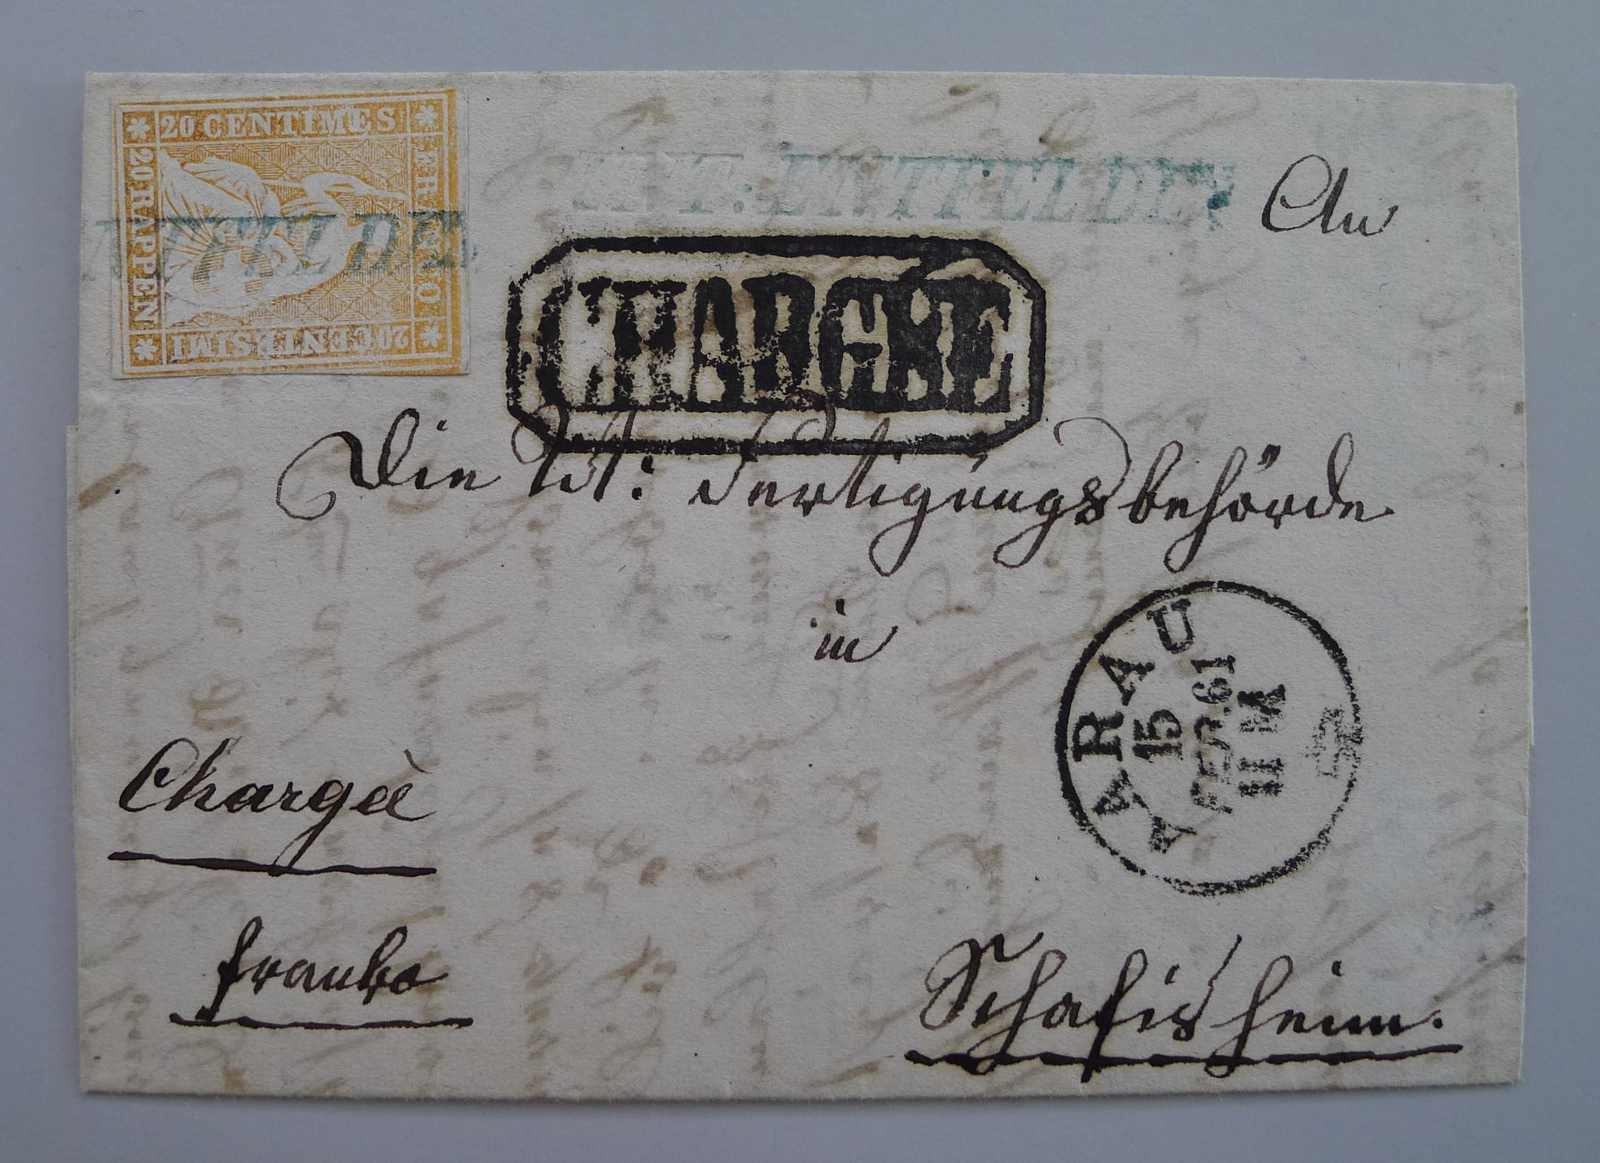 20 CENTIMES
FRANCO
20 CENTESIMI
20 RAPPEN
ENTFELDEN
UNT: ENTFELDEN
An
CHARGÉ
Die Tit: Fertigungsbehörde
in
AARAU
15
FEB. 61
II M
Chargè
franko
Schafisheim.